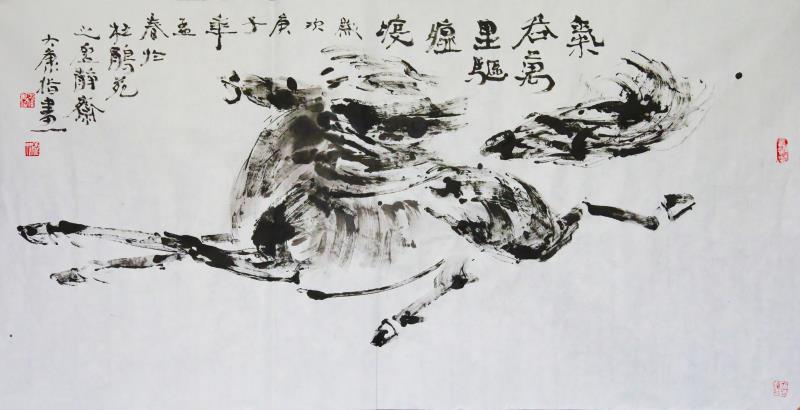 氣
吞萬
里驅
瘟
疫
歲
次
庚
子
年
孟
春於
杜鵑苑
之静齋
大康指書